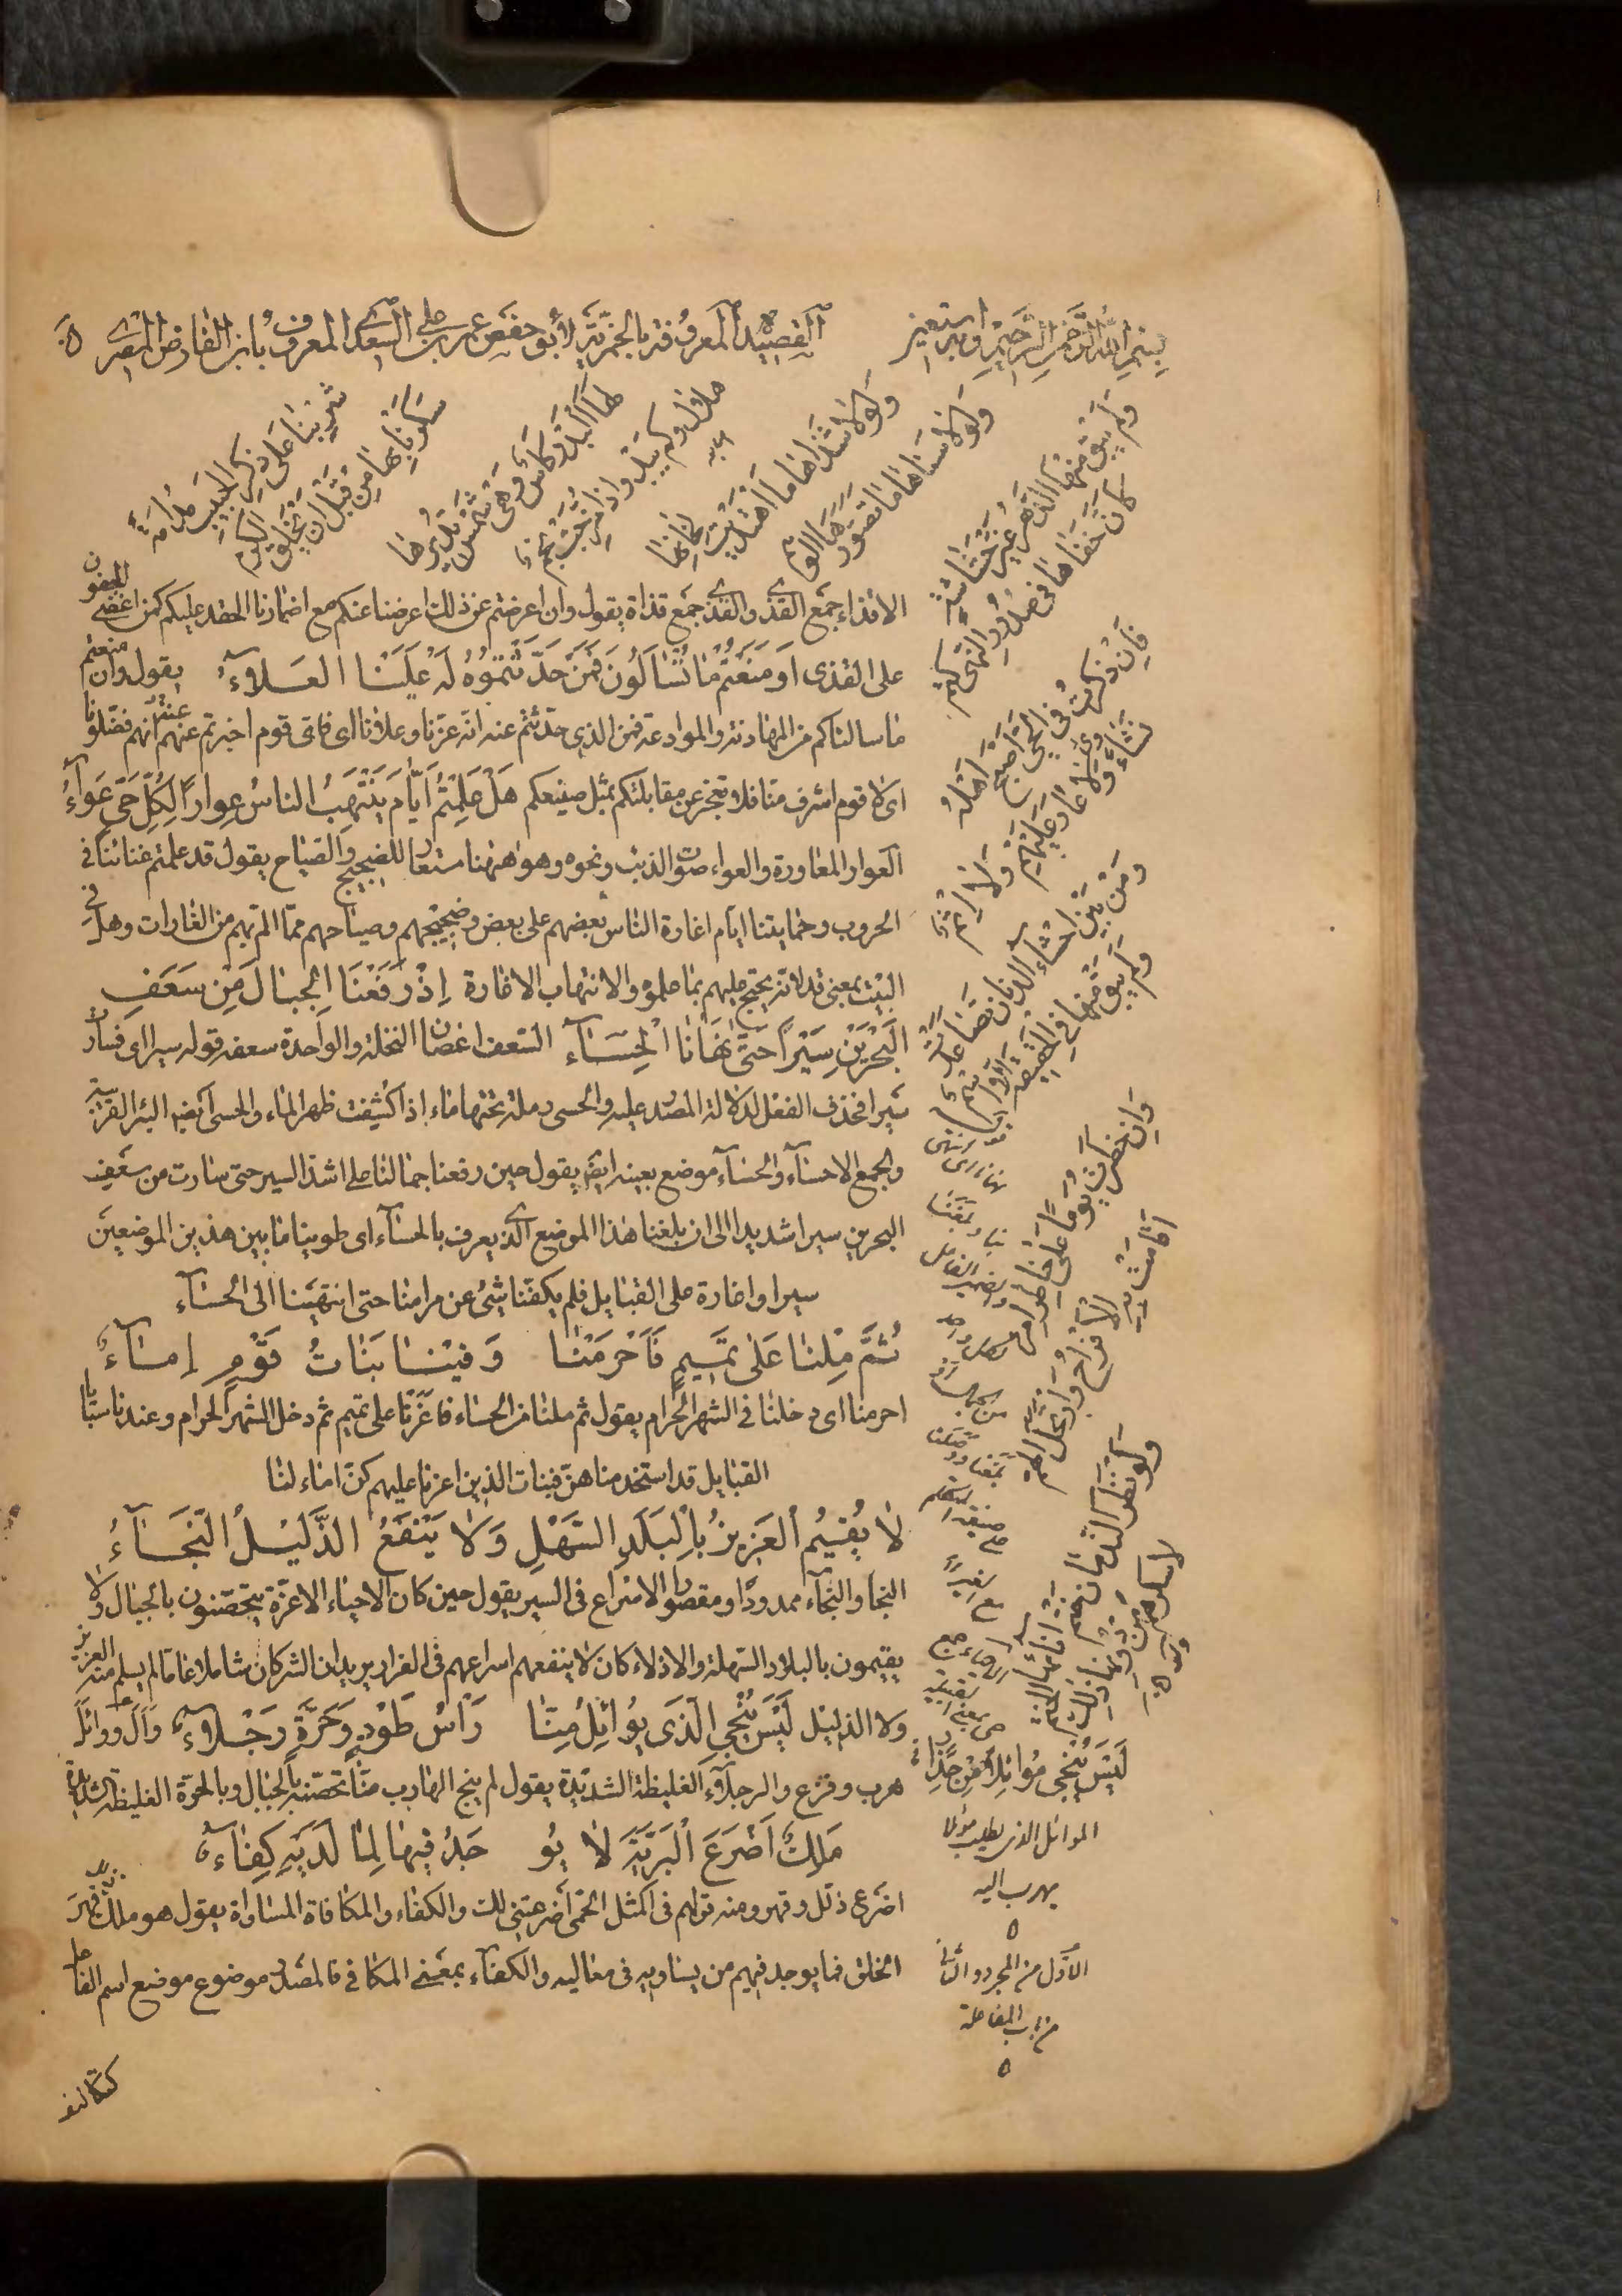 بِسْمِ اللهِ الرَّحْمنِ الرَّحِيْمِ وبه نستعين
القصيدة المعروفة بالخمرية لأبو حفص عمر بن علي السعدي المعروف بابن الفارض المصري
شَرِبْنَا عَلَى ذِكْرِ الحَبِيبِ مُدَامَةً
سَكِرْنَا بِهَا مِنْ قَبْلِ اَنْ يُخْلَقَ الكَرْمُ
لَهَا البَدْرُ كَأسٌ وَهِيَ شَمْسٌ يُدِيرُهَا
هلال وكم يبدو اذا مُزِجَتْ نَجْمُ
وَلَوْلَا شَذَاهَا مَا اهْتَدَيْتُ لِحَانِهَا
وَلَوْلَا سَنَاهَا مَا تَصَوَّرَهَا الوَهْمُ
وَلَمْ يُبْقِ مِنْهَا الدَّهْرُ غَيْرَ حُشَاشَةٍ
كَأنَّ خَفَاهَا فِي صُدُورِ النُّهَى كَتْمُ
فَاِنْ ذُكِرَتْ فِي الحَيِّ اَصْبَحَ اَهْلُهُ
نَشَاوَى وَلَا عَارٌ عَلَيْهِمْ وَلَا اِثْمُ
وَمِنْ بَيْنِ احْشَاءِ الدِّنَانِ تَصَاعَدَتْ
وَلَمْ يَبْقَ مِنْهَا فِي الحَقِيقَةِ اِلَّا اسْمُ
وَاِنْ خَطَرَتْ يَوْمًا عَلَى خَاطِرِ امْرِئٍ
اَقَامَتْ بِهِ الاَفْرَاحُ وَارْتَحَلَ الهَمُّ
وَلَوْ نَظَرَ النُّدْمَانُ خَتْمَ اِنَائِهَا
لَاَسْكَرَهُمْ مِنْ دُونِهَا ذلِكَ الخَتْمُ
الاقذاء جمع القذى والقذى جمع قذاة يقول وان اعرضتم عن ذلك اعرضنا عنكم مع اضمارنا الحقد عليكم كمن اغضى الجفون
على القذى اَوْ مَنَعْتُمْ مَا تُسْاَلُونَ فَمَنْ حُدِّثْتُمُوهُ لَهُ عَلَيْنَا العَلَاءُ يقول وان منعتم
ما سالناكم من المهادنة والموادعة فمن الذى حدثتم عنه انه عزنا وعلانا اى فاى قوم اخبرتم عنهم انهم فضلونا
اى لا قوم اشرف منا فلا نعجز عن مقابلتكم بمثل صنيعكم هَلْ عَلِمْتُمْ اَيَّامَ يُنْتَهَبُ الناسُ غِوَارًا لِكُلِّ حَيٍّ عَوَاءُ
الغوار المغاورة والعواء صوت الذئب ونحوه وهو ههنا مستعار للضجيج والصياح يقول قد علمتم غناءنا في
الحروب وحمايتنا ايام اغارة الناس بعضهم على بعض وضجيجهم وصياحهم مما الم بهم من الغارات وهل في
البيت بمعنى قد لانه يحتج عليهم بما علموه والانتهاب الاغارة اِذْ رَفَعْنَا الجِمَالَ مِنْ سَعَفِ
الْبَحْرَيْنِ سَيْرًا حَتَّى نَهَانَا الْحِسَاءُ السعف اغصان النخلة والواحدة سعفة قوله سيرا اى فسارت
سيرا فحذف الفعل لدلالة المصدر عليه والحسى رملة تحتها ماء اذا كشفت ظهر الماء والحسى ايضا البئر القريبة
والجمع الاحساء والحساء موضع بعينه ايضا يقول حين رفعنا جمالنا على اشد السير حتى سارت من سعف
البحرين سيرا شديدا الى ان بلغنا هذا الموضع الذى يعرف بالحساء اى طوينا ما بين هذين الموضعين
سيرا واغارة على القبايل فلم يكفنا شئ عن مرامنا حتى انتهينا الى الحساء
ثُمَّ مِلْنَا عَلَى تَمِيمٍ فَاَحْرَمْنَا وَفِيْنَا بَنَاتُ قَوْمٍ اِمَاءُ
احرمنا اى دخلنا في الشهر الحرام يقول ثم ملنا من الحساء فاغرنا على تميم ثم دخل الشهر الحرام وعندنا سبايا
القبايل قد استخدمناهن فبنات الذين اغرنا عليهم كن اماء لنا
لَا يُقِيْمُ العَزِيزُ بِالْبَلَدِ السَّهْلِ وَلَا يَنْفَعُ الذَّلِيْلَ النَّجَاءُ
النجا والنجاء ممدودا ومقصورا الاسراع فى السير يقول حين كان الاحياء الاعزة يتحصنون بالجبال ولا
يقيمون بالبلاد السهلة والاذلاء كان لا ينفعهم اسراعهم فى الفرار يريد ان الشر كان شاملا عاما لم يسلم منه العزيز
ولا الذليل لَيْسَ يُنْجِي الَّذِى يُوَائِلُ مِنَّا رَأسُ طَوْدٍ وَحَرَّةٌ رَجْلَاءُ وَاَلَ ووائل
هرب وفزع والرجلاء الغليظة الشديدة يقول لم ينج الهارب منا تحصنه بالجبال وبالحرة الغليظة الشديدة
مَلِكٌ اَضْرَعَ الْبَرِيَّةَ لَا يُوْجَدُ فِيهَا لِمَا لَدَيْهِ كِفَاءُ
اضرع ذلل وقهر ومنه قولهم فى المثل الحمى اضرعتنى لك والكفاء والمكافاة المساواة يقول هو ملك قهر
الخلق فما يوجد فيهم من يساويه فى معاليه والكفاء بمعنى المكافى فالمصدر موضوع موضع اسم الفاعل
لَيْسَ يُنْجِى مُوَائِلًا مِنْ حِذَارٍ
الموائل الذى يطلب موئلا
يهرب اليه
الاول من المجرد والثانى
من باب المفاعلة
كتكاليف